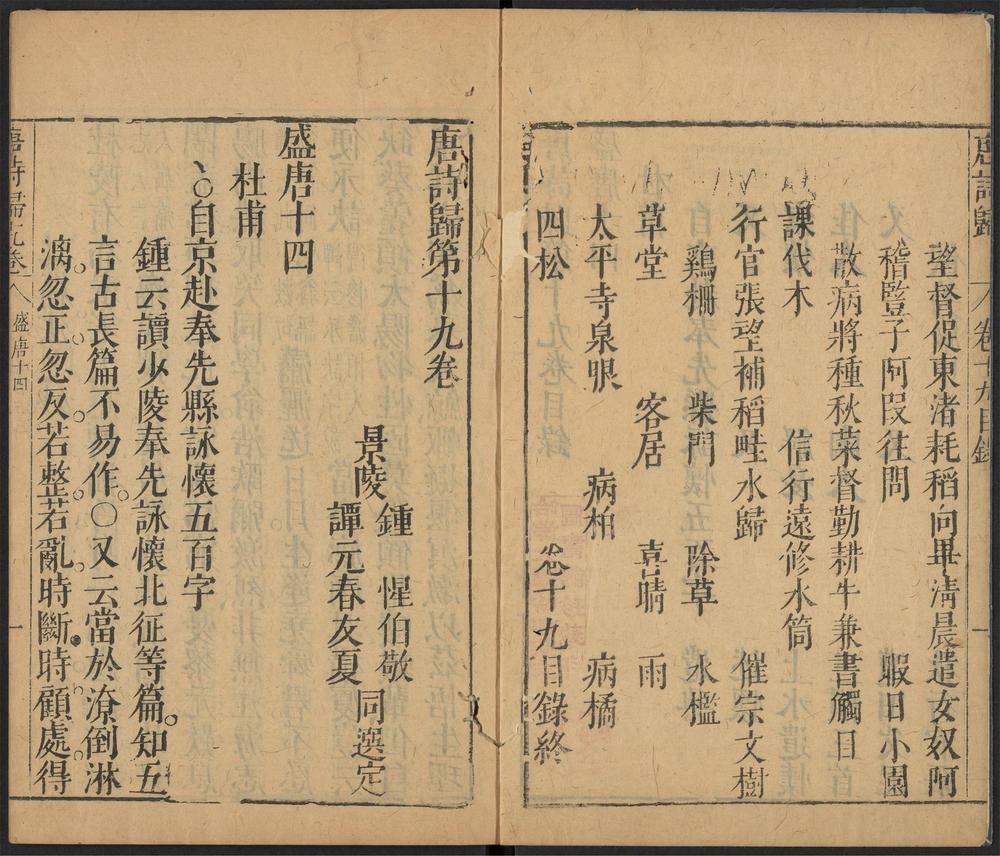 唐詩歸 卷十九目錄 一
望督促東渚耗稻向畢清晨遣女奴阿
稽豎子阿段往問 暇日小園
散病將種秋菜督勤耕牛兼書觸目
課伐木 信行遠修水筒
行官張望補稻畦水歸 催宗文樹
鷄柵 柴門 除草 水檻
草堂 客居 喜晴 雨
太平寺泉眼 病柏 病橘
四松 卷十九目錄終
唐詩歸第十九卷
景陵 鍾惺伯敬
譚元春友夏
同選定
盛唐十四
杜甫
自京赴奉先縣詠懷五百字
鍾云讀少陵奉先詠懷北征等篇。知五
言古長篇不易作。○又云當於潦倒淋
漓。忽正忽反。若整若亂。時斷時顧處得
唐詩歸 卷 盛唐十四 一